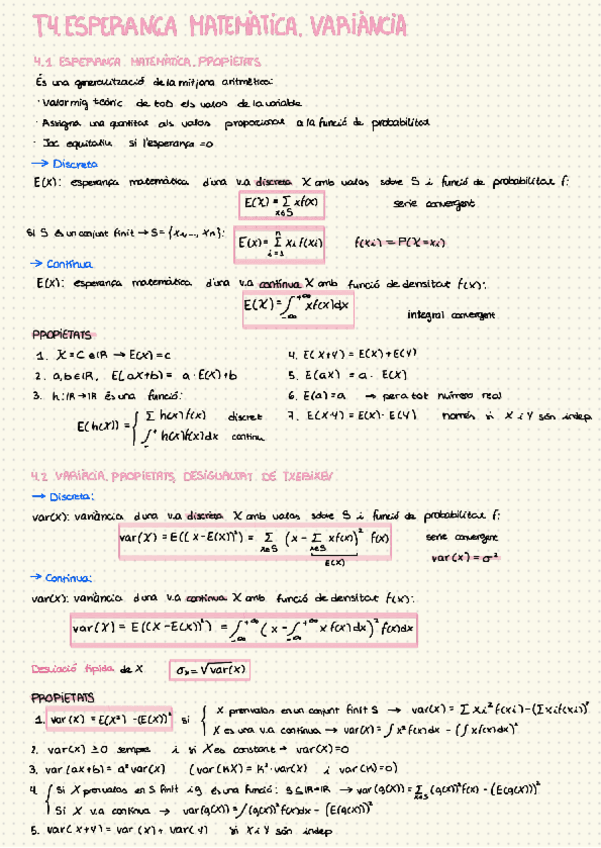 T4. ESPERANÇA MATEMÀTICA. VARIÀNCIA
4.1. ESPERANÇA MATEMÀTICA. PROPIETATS
És una generalització de la mitjana aritmètica:
· Valor mig teòric de tots els valors de la variable
· Assigna una quantitat als valors proporcional a la funció de probabilitat
· Joc equitatiu si l'esperança = 0
→ Discreta
E(X): esperança matemàtica d'una v.a discreta X amb valors sobre S i funció de probabilitat f:
E(X) = Σ x∈S xf(x) sèrie convergent
Si S és un conjunt finit → S = {x₁, ..., xₙ}: E(X) = Σ i=1 n xᵢ f(xᵢ) f(xᵢ) = P(X = xᵢ)
→ Contínua
E(X): esperança matemàtica d'una v.a contínua X amb funció de densitat f(x):
E(X) = ∫ -∞ +∞ xf(x)dx integral convergent
PROPIETATS
1. X = C ∈ IR → E(X) = C
2. a, b ∈ IR, E(aX+b) = a · E(X) + b
3. h: IR → IR és una funció:
E(h(X)) = { Σ h(x) f(x) discret
∫ h(x) f(x) dx continu
4. E(X+Y) = E(X) + E(Y)
5. E(aX) = a · E(X)
6. E(a) = a → per a tot número real
7. E(X·Y) = E(X) · E(Y) només si X i Y són indep
4.2. VARIÀNCIA. PROPIETATS, DESIGUALTAT DE TXEBIXEV
→ Discreta:
var(X): variància d'una v.a discreta X amb valors sobre S i funció de probabilitat f:
var(X) = E((X-E(X))²) = Σ x∈S (x - Σ x∈S xf(x))² f(x) sèrie convergent
E(X) var(X) = σ²
→ Contínua:
var(X): variància d'una v.a contínua X amb funció de densitat f(x):
var(X) = E((X-E(X))²) = ∫ -∞ +∞ (x - ∫ -∞ +∞ x f(x) dx)² f(x)dx
Desviació típica de X σₓ = √var(X)
PROPIETATS
1. var(X) = E(X²) - (E(X))² si { X pren valors en un conjunt finit S → var(X) = Σ xᵢ² f(xᵢ) - (Σ xᵢ f(xᵢ))²
X és una v.a contínua → var(X) = ∫ x² f(x)dx - (∫ x f(x)dx)²
2. var(X) ≥ 0 sempre i si X és constant → var(X) = 0
3. var(aX+b) = a² var(X) (var(kX) = k² · var(X) i var(k) = 0)
4. { Si X pren valors en S finit i g és una funció: g: S ⊆ IR → IR → var(g(X)) = Σ x∈S (g(x))² f(x) - (E(g(X)))²
Si X v.a contínua → var(g(X)) = ∫ (g(x))² f(x)dx - (E(g(X)))²
5. var(X+Y) = var(X) + var(Y) si X i Y són indep